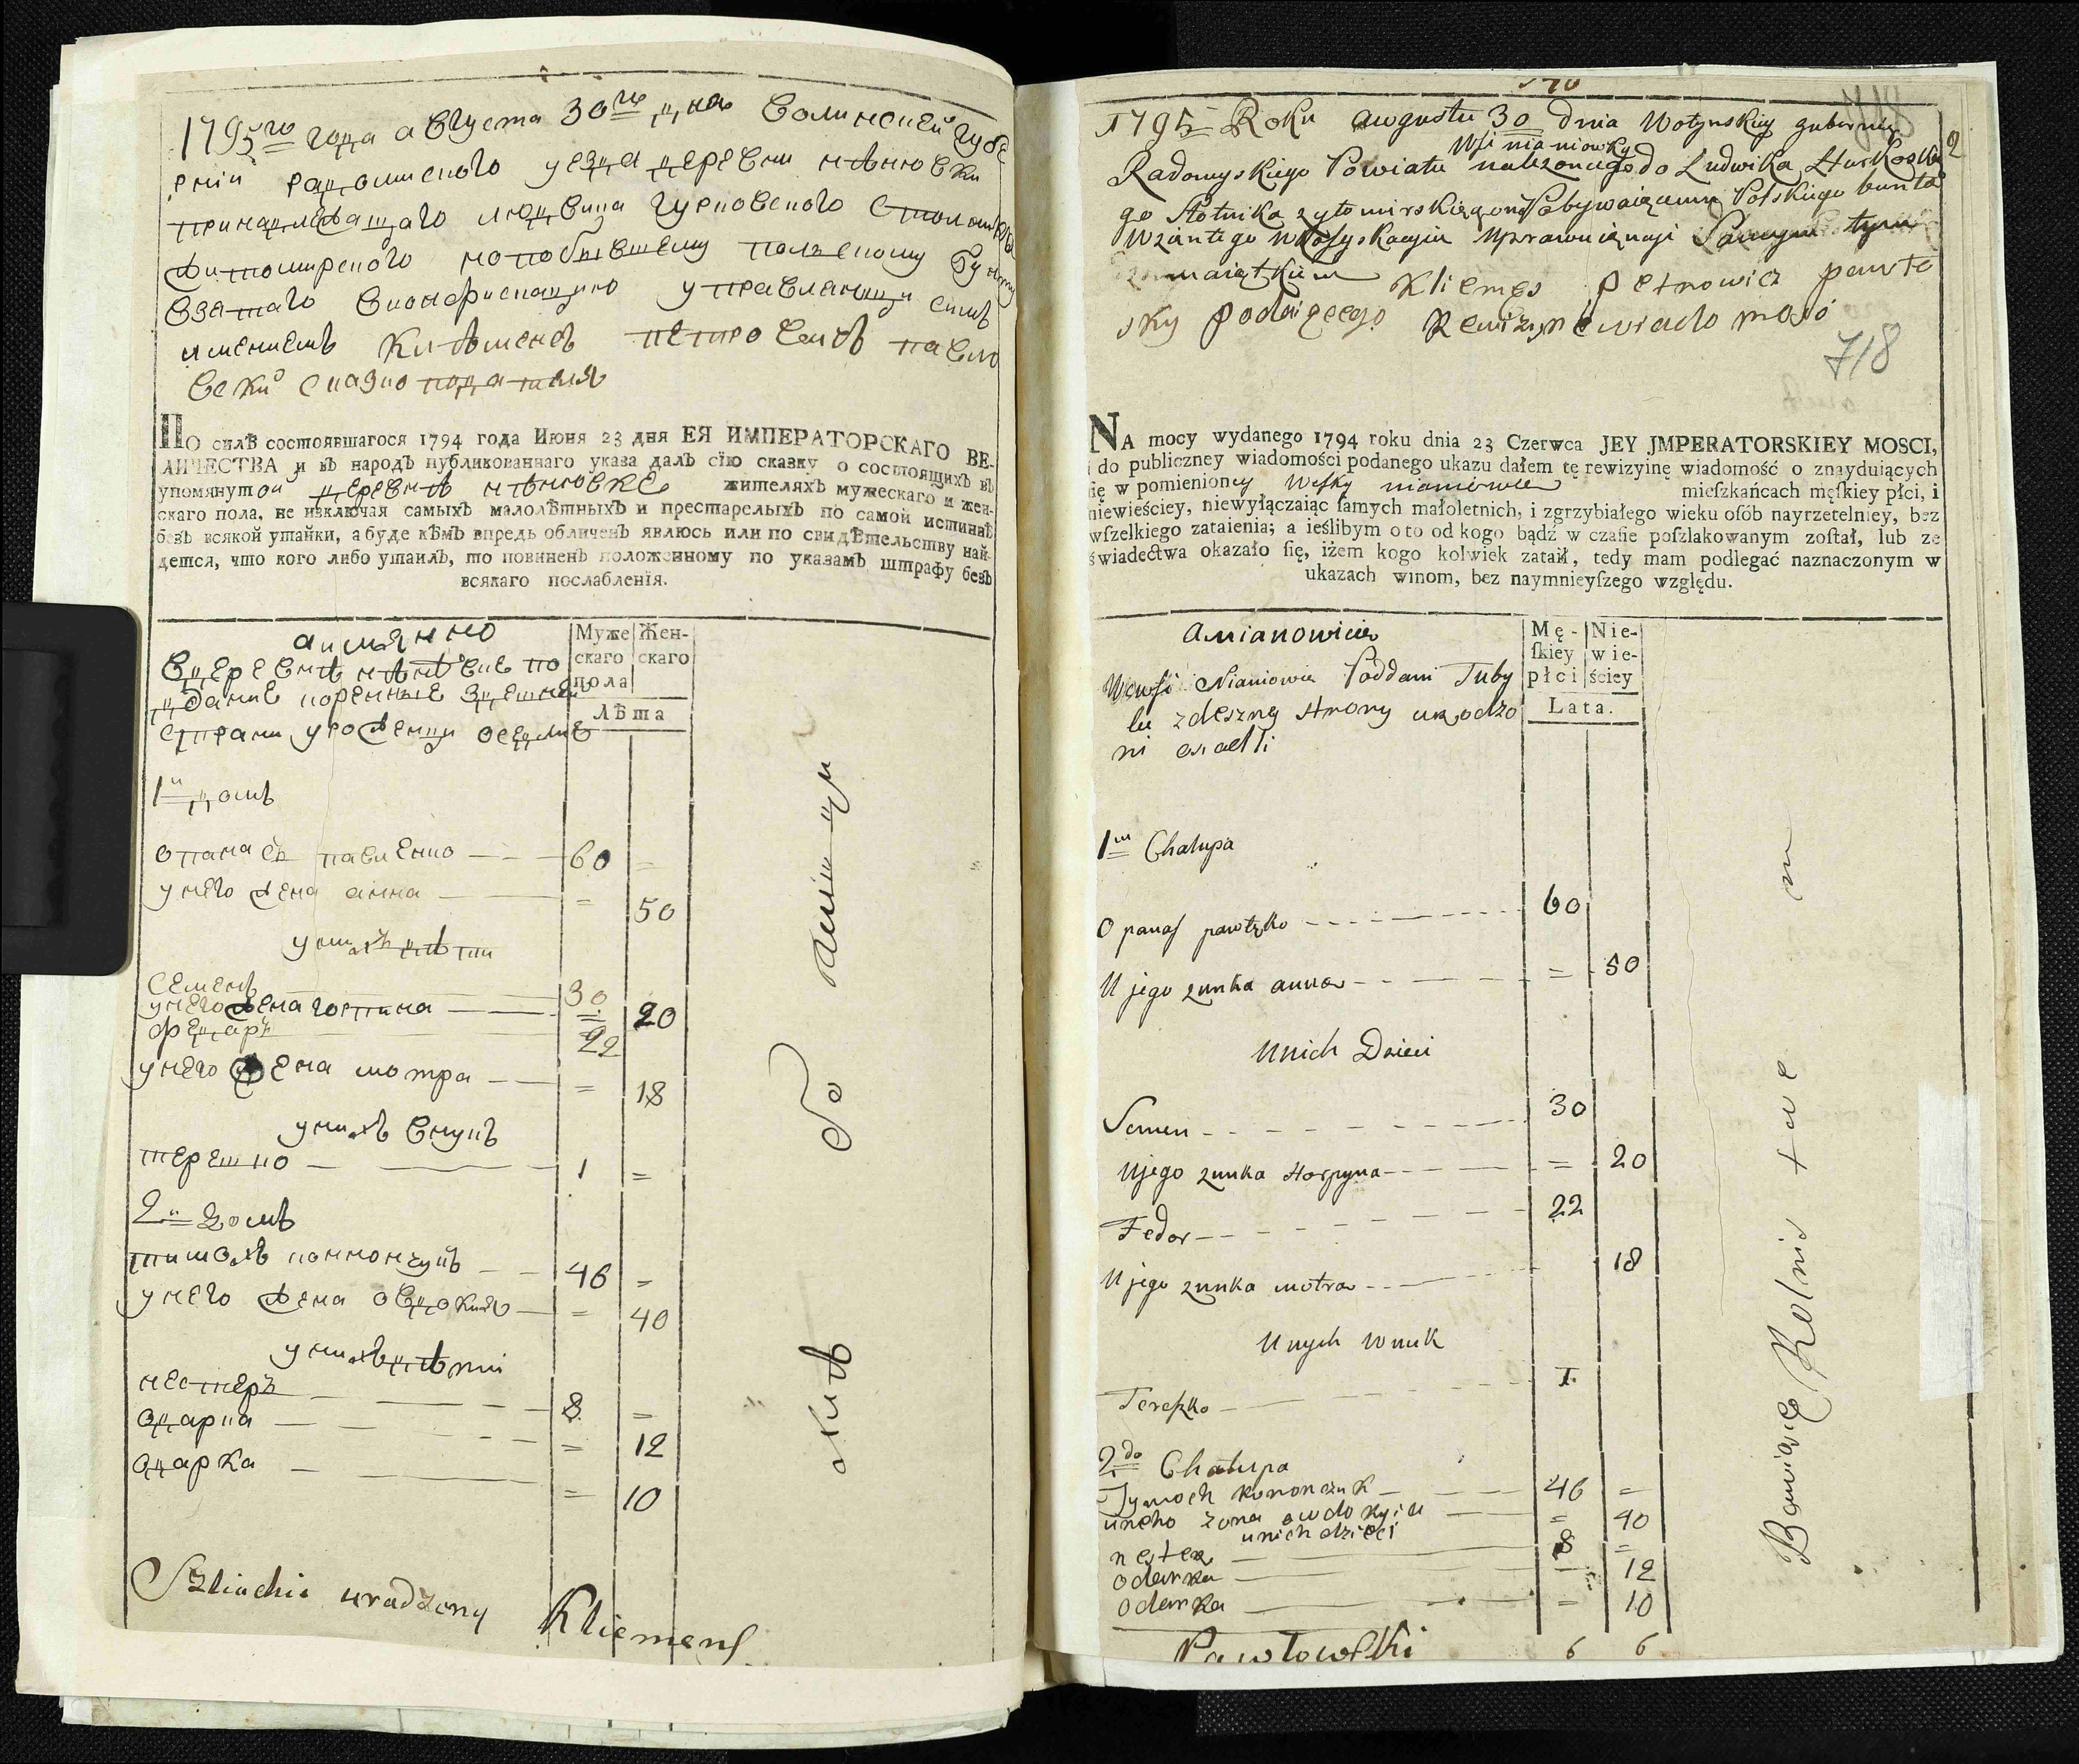 1795го года августа 30го дна Волинской губе
рнии радомиского уезда деревни нѣнювки
принадлѣжащаго людвика гурковского столника
житомирского
взятаго вконфискацию управляющи симъ
имениемъ Клѣменсъ петровичъ павло
вски сказко податиля
По силѣ состоявшагося 1794 года Июня 23 дня ЕЯ ИМПЕРАТОРСКАГО ВЕ-
ЛИЧЕСТВА и въ народъ публикованнаго указа далъ сїю сказку о состоящихъ въ
упомянутои деревнѣ нѣнювке жителяхъ мужескаго и жен-
скаго пола, не изключая самыхъ малолѣтныхъ и престарелыхъ по самой истиннѣ
безъ всякой утайки, а буде кѣмъ впредь обличенъ явлюсь или по свидѣтельству най-
дется, что кого либо утаилъ, то повиненъ положенному по указамъ штрафу безъ
всякаго послабленїя.
аимянно
вдеревнѣ по
дание коренные здешней
страни уроженци оседлие
Муже
скаго
пола
Жен-
скаго
Лѣта
1и домъ
опанасъ павленко — 60 =
унего жена анна — = 50
унихъ дѣти
семенъ 30
унего жена горпина — = 20
федаръ 22
унего жена мотра — = 18
унихъ внукъ
терешко — 1 =
2и домъ
тимохъ конончукъ — 46 =
унего жена овдокия — = 40
унихъ дѣти
нестеръ — 8 =
одарка — = 12
одарка — = 10
Szliachic uradzony Kliemens
170
1795 Roku augustu 30 dnia Wołynskiey gubernii
Wsi nianiowky
Radomyskiego Powiatu należącego do Ludwika Hurkowskie
go Stolnika żytomirskiego Polskiego buntu
Wziantego
maiątkiem Kliemęs petrowicz pawło
sky podaięcego Rewizyne wiadomość
718
2
NA mocy wydanego 1794 roku dnia 23 Czerwca JEY JMPERATORSKIEY MOSCI,
i do publiczney wiadomości podanego ukazu dałem tę rewizyinę wiadomość o znayduiących
się w pomienioney Wesky nianiowce mieszkańcach męskiey płci, i
niewieściey, niewyłączaiąc samych małoletnich, i zgrzybiałego wieku osób nayrzetelniey, bez
wszelkiego zataienia; a ieślibym o to od kogo bądź w czasie poszlakowanym został, lub ze
świadectwa okazało się, iżem kogo kolwiek zataił, tedy mam podlegać naznaczonym w
ukazach winom, bez naymnieyszego względu.
Amianowicie
Wewsi Nianiowce Poddani Tuby
lce zdeszney strony urodzo
ni osiedli
Mę-
skiey
płci
Nie-
wie-
ściey
Lata.
1m Chałupa
Opanas pawłęko 60
U jego żunka anna = 50
Unich Dzieci
Semen 30
Ujego żunka Horpyna = 20
Fedor 22
Ujego żunka motra 18
Unych wnuk
Tereszko I
2do Chałupa
Tymoch kononczuk 46 =
uneho żona owdokyia = 40
unich dzieci
nester 8 =
odarka 12
odarka = 10
Pawłowski 6 6